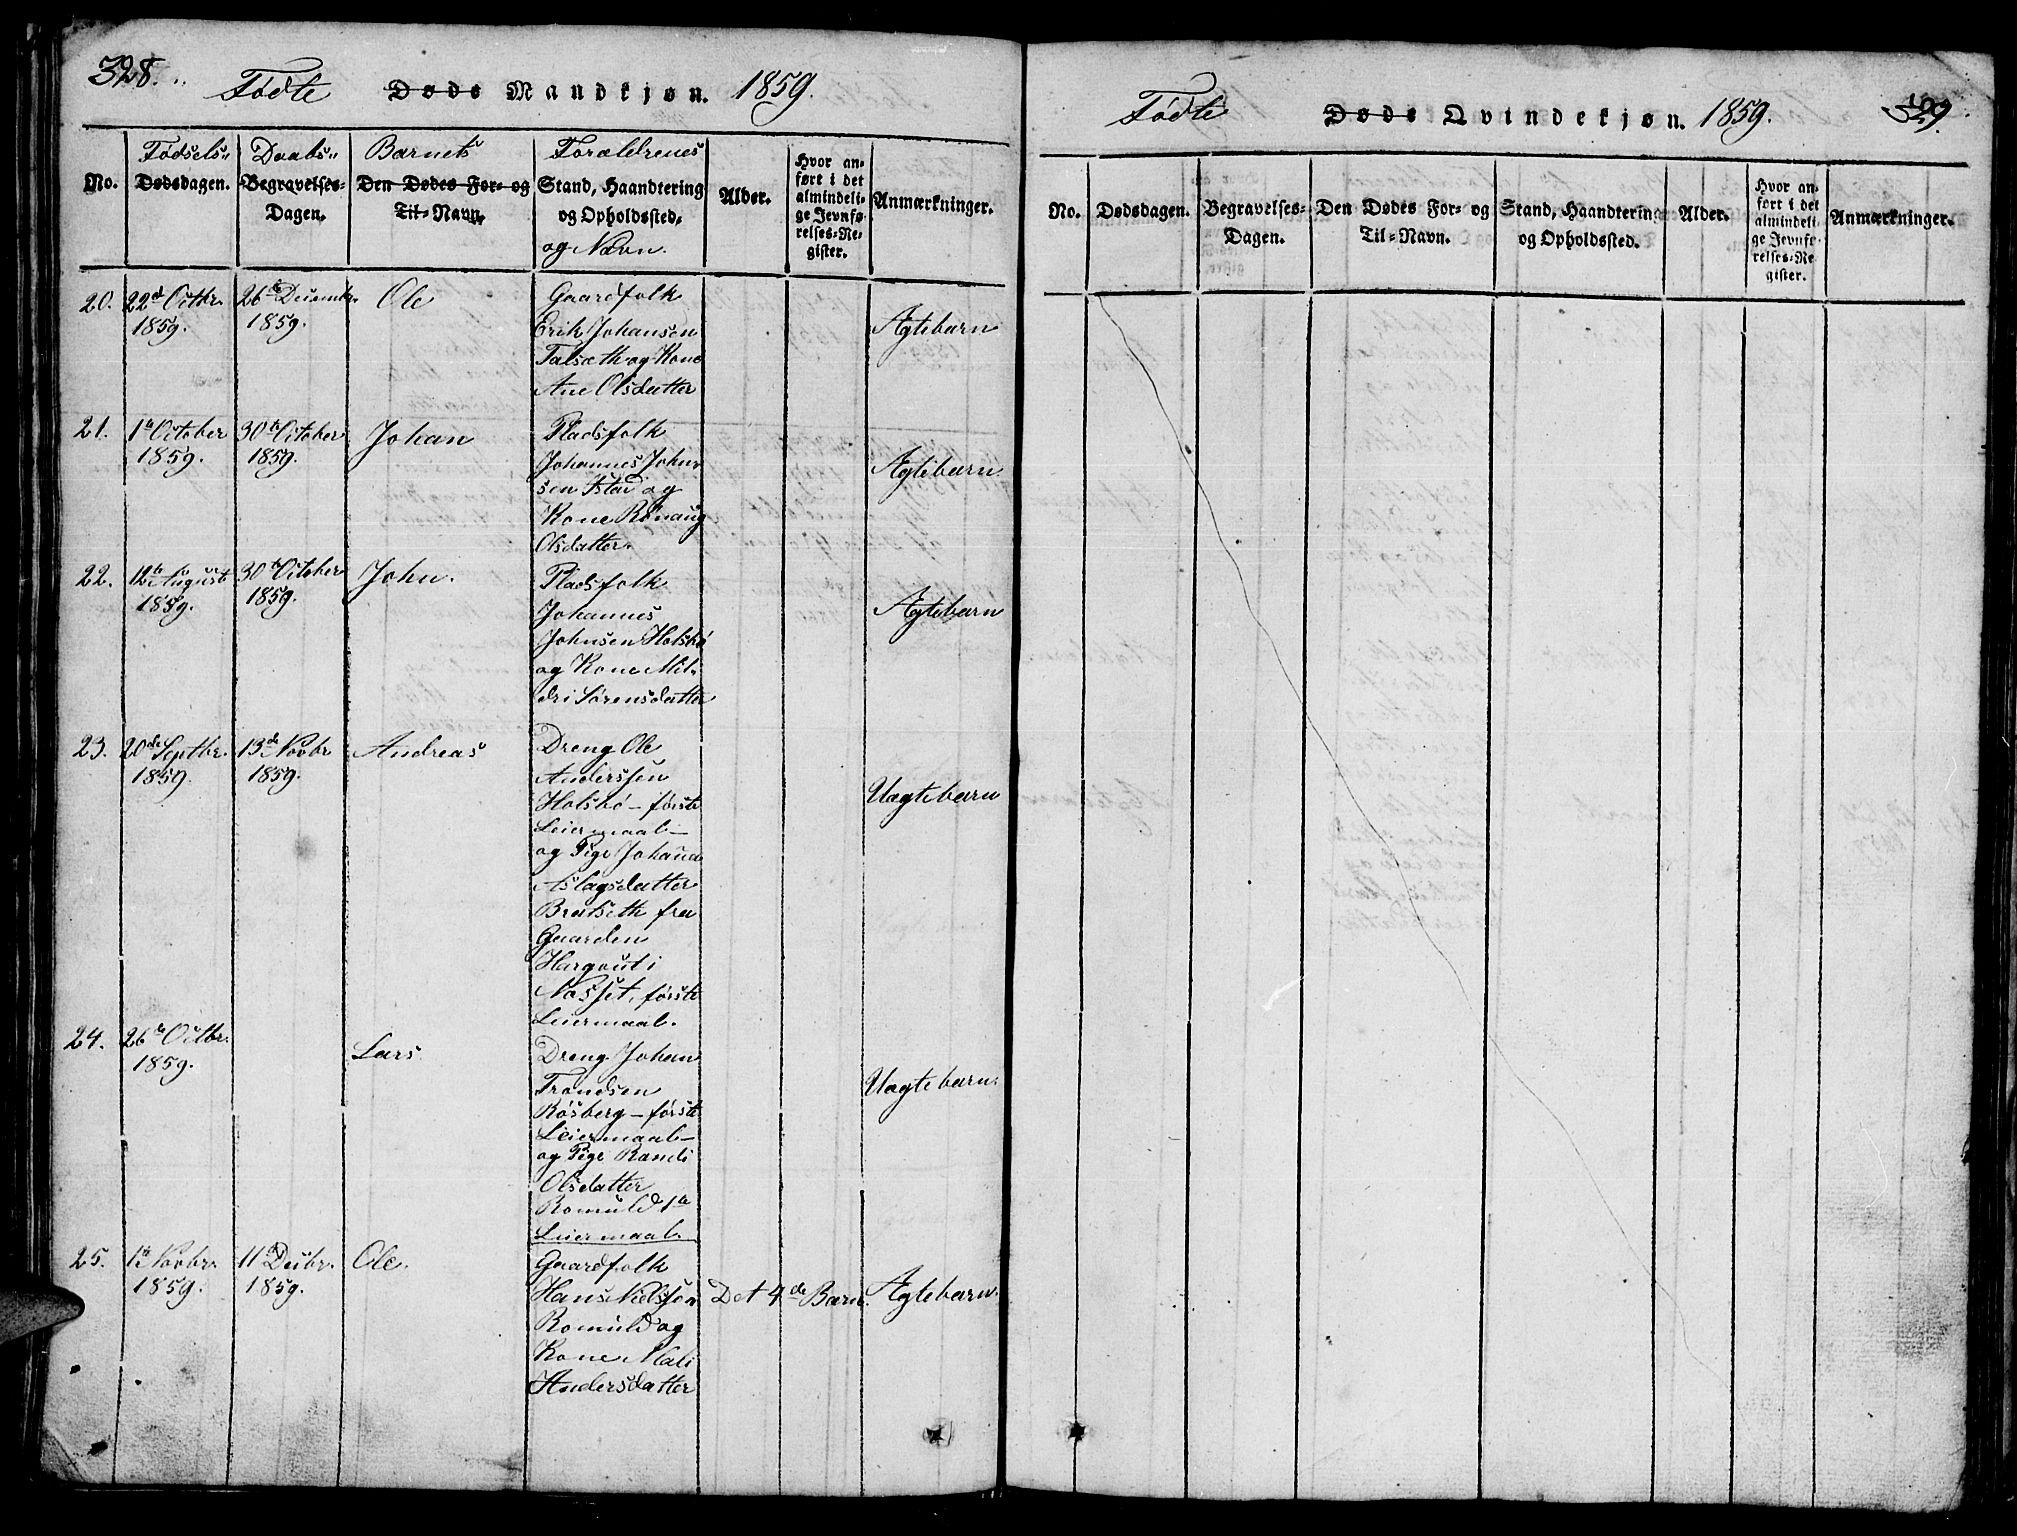 328.
Fødte Døde Mandkjøn. 1859.
No.
Fødsels=
Dødsdagen.
Daabs=
Begravelses=
Dagen.
Barnets
Den Dødes For= og
Til=Navn.
Forældrenes
Stand, Haandtering
og Opholdssted,
og Navn.
Alder.
Hvor an=
ført i det
almindeli=
ge Jevnfø=
relses=Re=
gister.
Anmærkninger.
20. 22d Octbr. 26de Decembr. Ole Gaardfolk
1859. 1859. Erik Johansen Ægtebarn
Talsæth og Kone
Ane Olsdatter
21. 1te October 30te October Johan Pladsfolk
1859. 1859. Johannes John= Ægtebarn
sen Istad og
Kone Rønaug
Olsdatter.
22. 12te August 30te October John. Pladsfolk
1859. 1859. Johannes Ægtebarn
Johnsen Holsbø
og Kone Mil=
dri Sørensdatter
23. 20de Septbr. 13de Novbr Andreas Dreng Ole
1859. 1859. Anderssen
Holsbø – første Uægtebarn
Leiermaal –
og Pige Johana
Aslagsdatter
Bratseth fra
Gaarden
Hargout i
Næsset, første
Leiermaal.
24. 26de Octbr. Lars. Dreng Johan
1859. Trondsen Uægtebarn.
Røsberg – første
Leiermaal –
og Pige Randi
Olsdatter
Romuld 1te
Leiermaal.
25. 1te Novbr. 11te Decbr. Ole. Gaardfolk
1859. 1859. Hans Nielssen Det 4de Barn. Ægtebarn.
Romuld og
Kone Mali
Andersdatter
Fødte Døde Qvindekjøn. 1859.
329.
No.
Dødsdagen.
Begravelses=
Dagen.
Den Dødes For= og
Til=Navn.
Stand, Haandtering
og Opholdssted.
Alder.
Hvor an=
ført i det
almindeli=
ge Jevnfø=
relses=Re=
gister.
Anmærkninger.